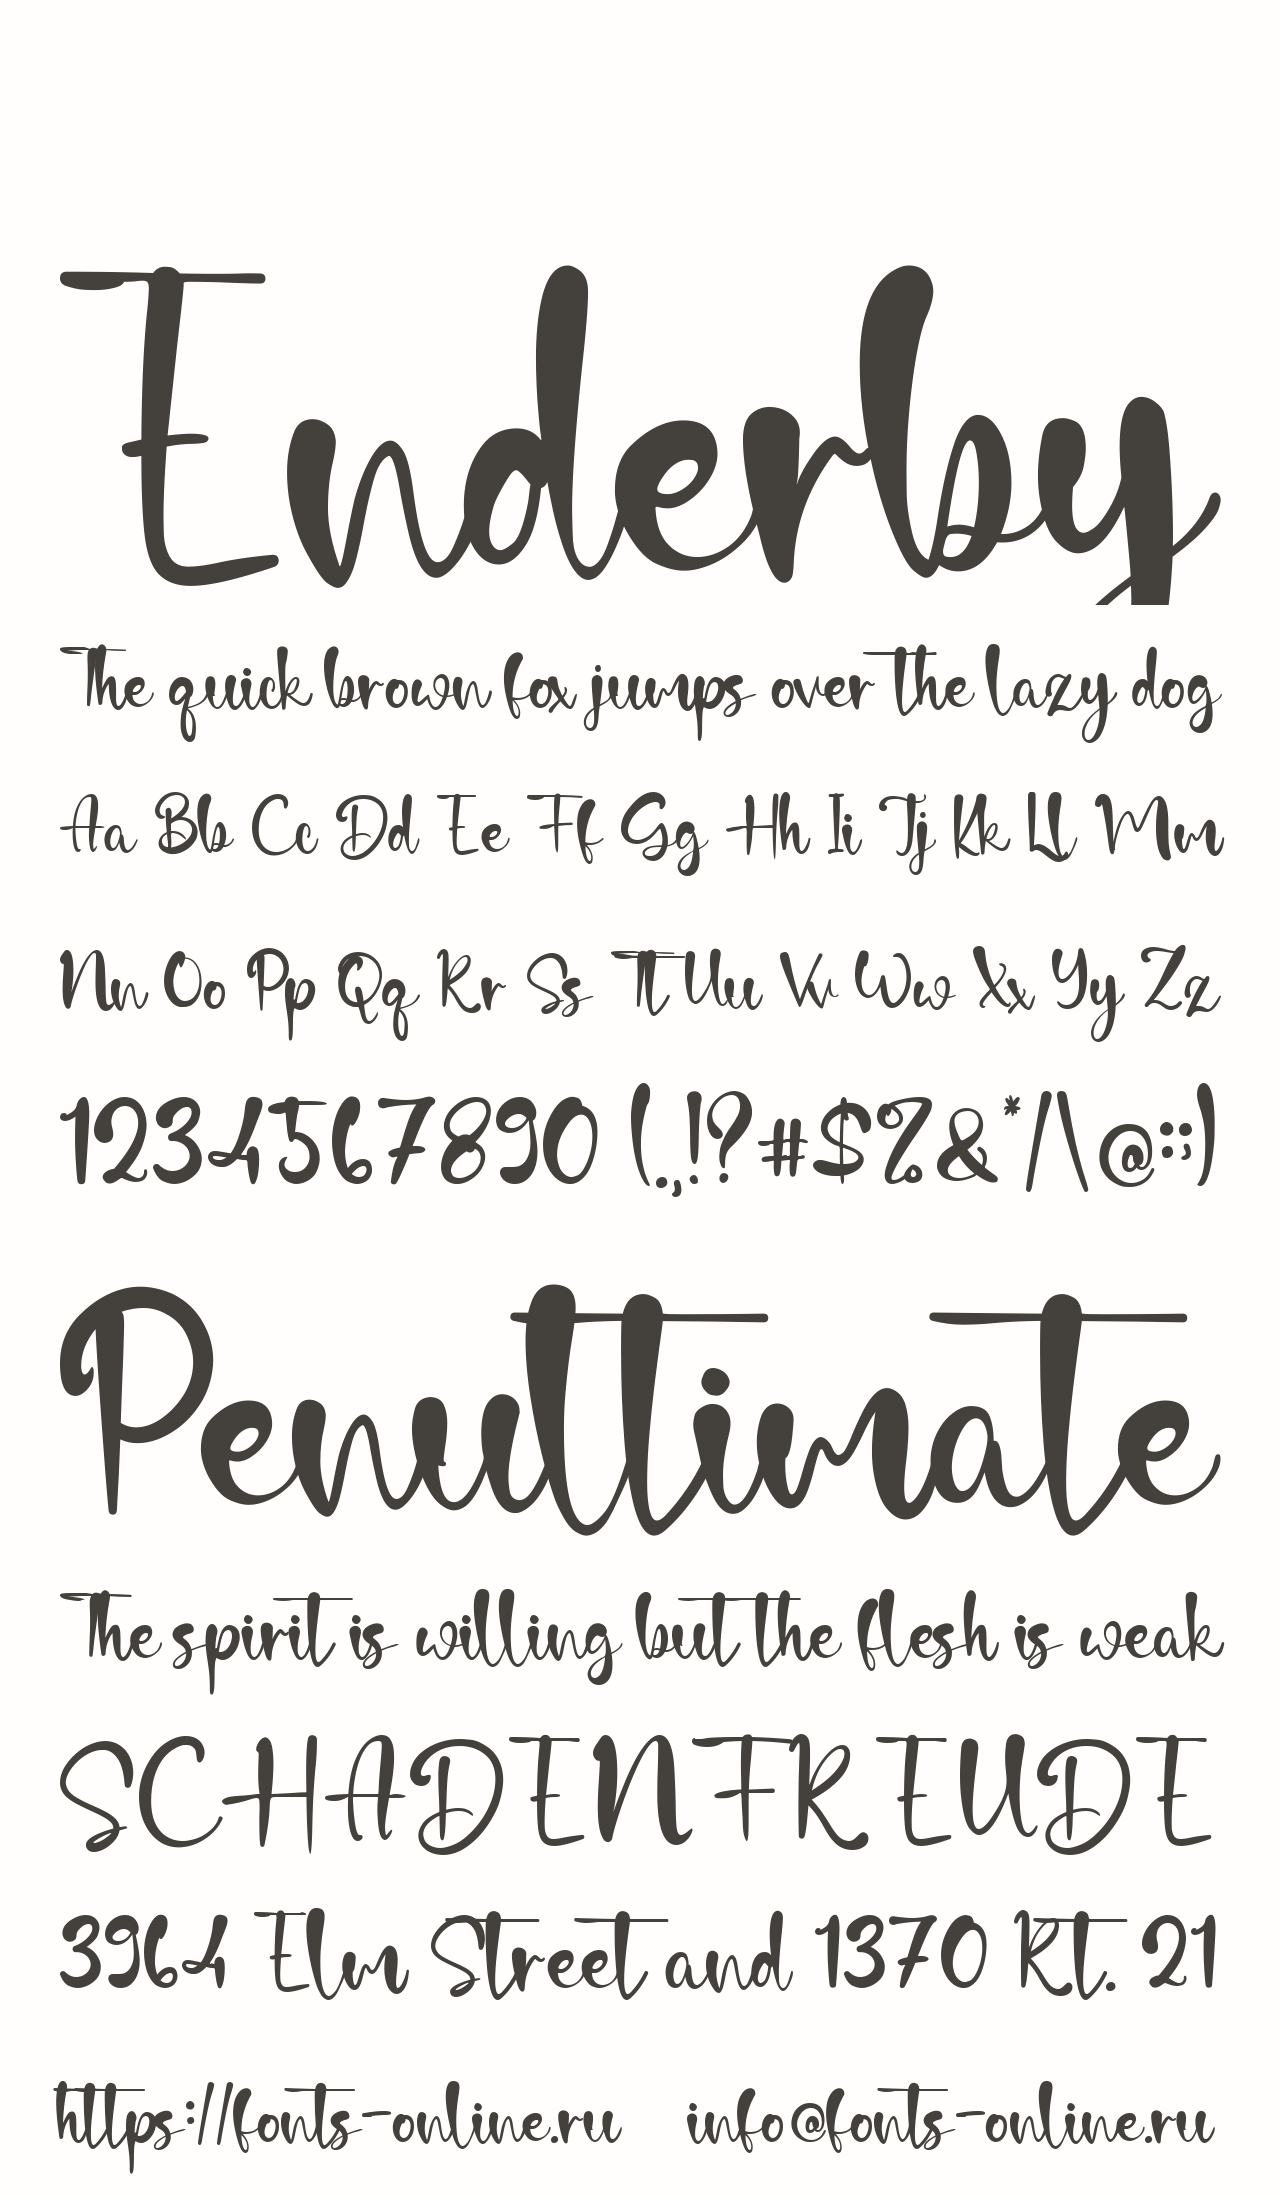 Enderby
The quick brown fox jumps over the lazy dog
Aa Bb Cc Dd Ee Ff Gg Hh Ii Jj Kk Ll Mm
Nn Oo Pp Qq Rr Ss Tt Uu Vv Ww Xx Yy Zz
1234567890 (.,!?#$%&*/\@:;)
Penultimate
The spirit is willing but the flesh is weak
SCHADENFREUDE
3964 Elm Street and 1370 Rt. 21
https://fonts-online.ru info@fonts-online.ru